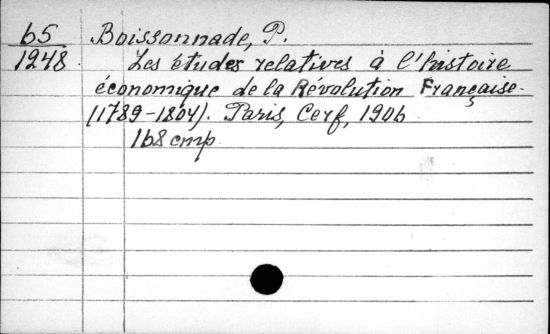 65
1248
Boissonnade, P.
Les études relatives à l'histoire
économique de la Révolution Française.
(1789-1804). Paris, Cerf, 1906
168 cmp